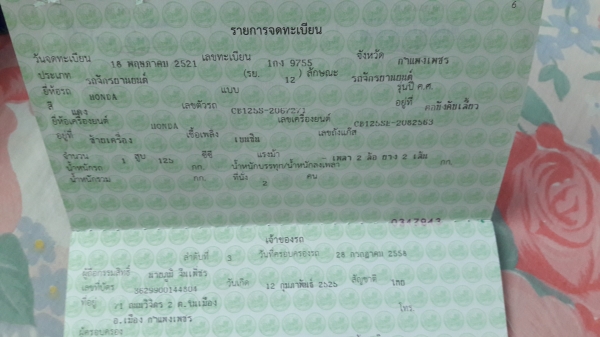 6
รายการจดทะเบียน
วันจดทะเบียน 18 พฤษภาคม 2521 เลขทะเบียน 1กง 9755 จังหวัด กำแพงเพชร
ประเภท รถจักรยานยนต์ (รย. 12 ) ลักษณะ รถจักรยานยนต์
ยี่ห้อรถ HONDA แบบ รุ่นปี ค.ศ.
สี แดง เลขตัวรถ อยู่ที่
ยี่ห้อเครื่องยนต์ HONDA เลขเครื่องยนต์ CB125S-2082563
อยู่ที่ ข้างเครื่อง เชื้อเพลิง เบนซิน เลขถังแก๊ส
จำนวน 1 สูบ 125 ซีซี แรงม้า เพลา 2 ล้อ ยาง 2 เส้น
น้ำหนักรถ กก. น้ำหนักบรรทุก/น้ำหนักลงเพลา กก.
น้ำหนักรวม กก. ที่นั่ง 2 คน
0347943
เจ้าของรถ
ลำดับที่ 3 วันที่ครอบครองรถ 26 กรกฎาคม
ผู้ถือกรรมสิทธิ์
เลขที่บัตร 3629900144504 วันเกิด 12 กุมภาพันธ์ 2525 สัญชาติ ไทย
ที่อยู่ ต.ในเมือง โทร.
อ.เมือง กำแพงเพชร
ผู้ครอบครอง